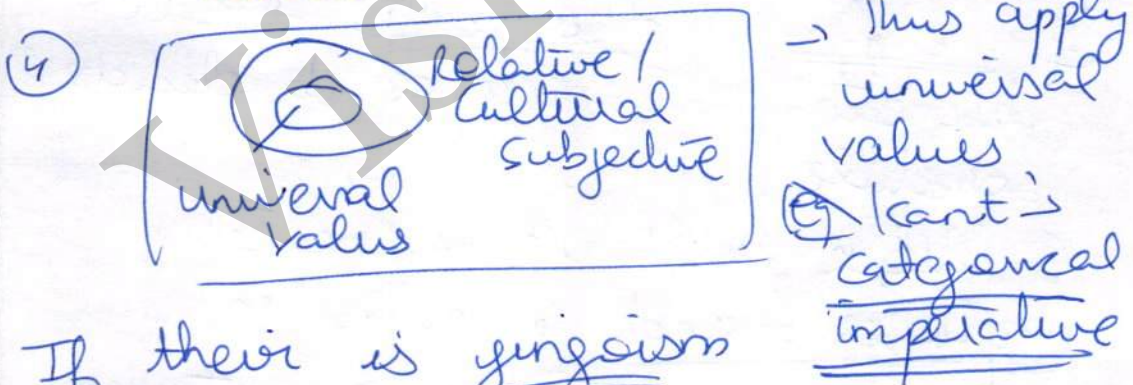 (4)
Relative /
Cultural
Subjective
univeral
values
→ Thus apply
universal
values
eg Kant's
categorical
imperative
If their is gingoism
Visi